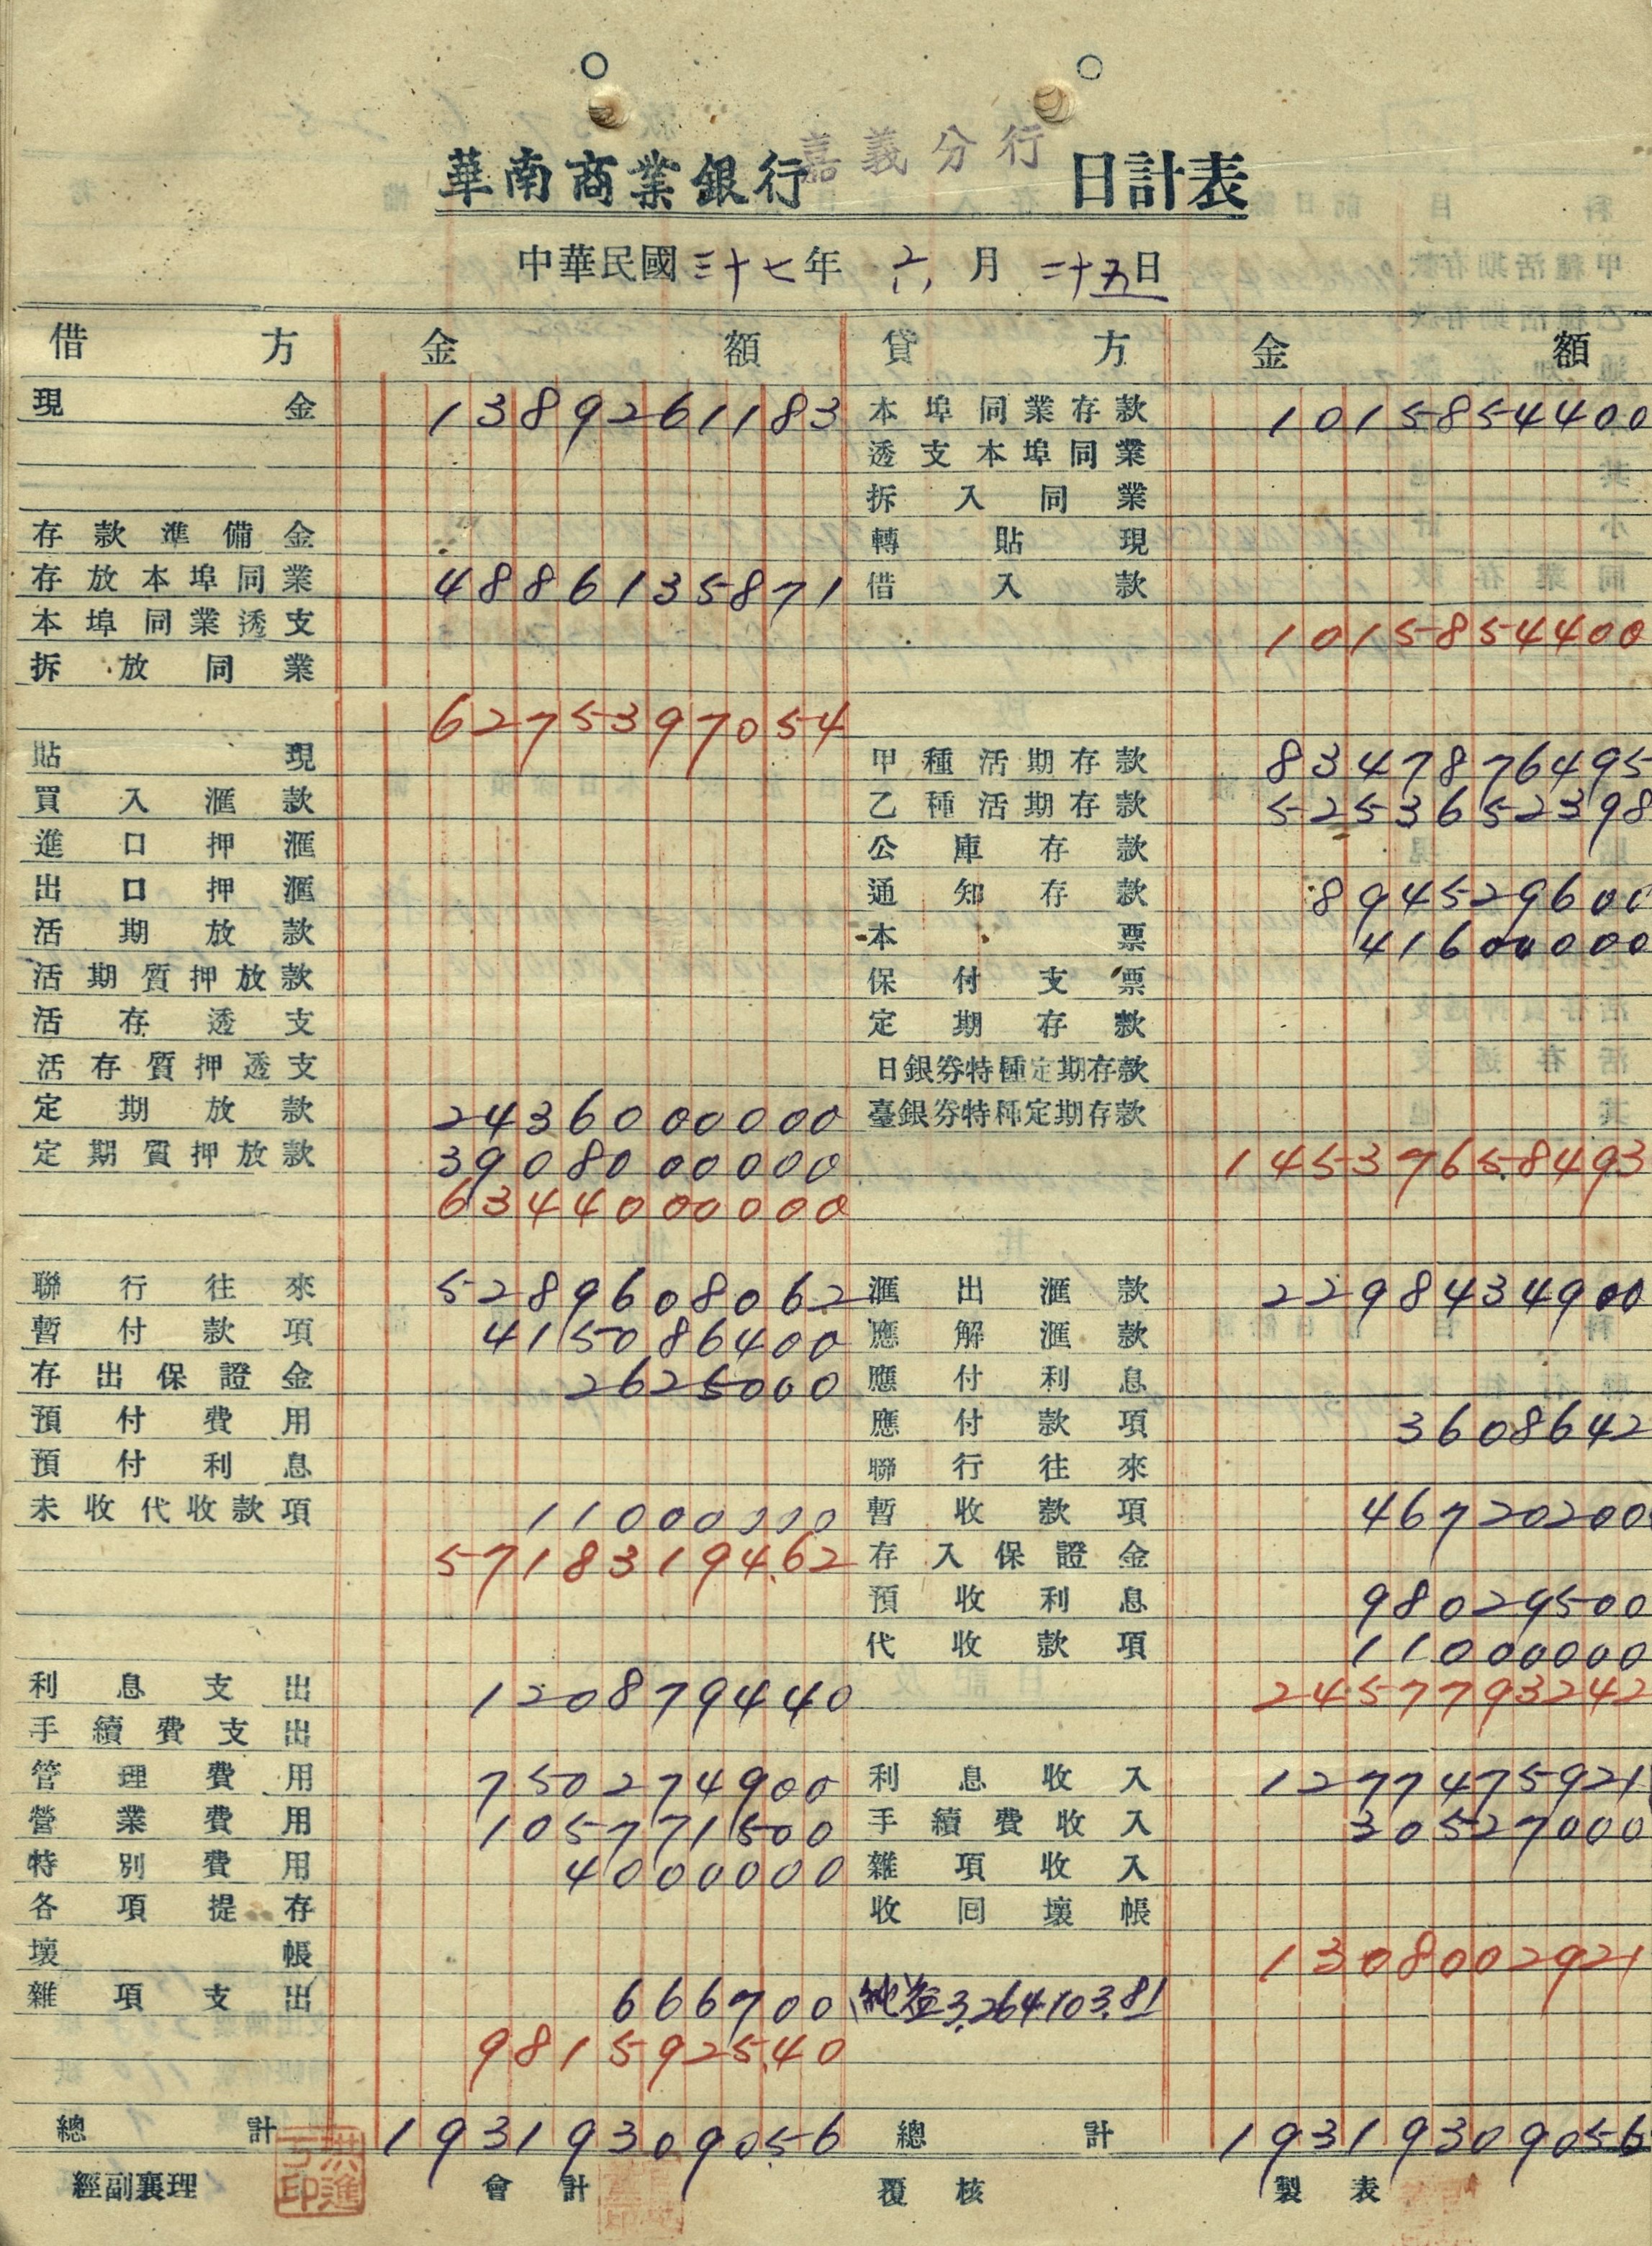 嘉義分行
華南商業銀行 日計表
中華民國三十七年 六月 二十五日
借方 金額 貸方 金額
現金 1389261183 本埠同業存款 1015854400
透支本埠同業
拆入同業
存款準備金 轉貼現
存放本埠同業 4886135871 借入款
本埠同業透支 1015854400
拆放同業
6275397054
貼現 甲種活期存款 8347876495
買入滙款 乙種活期存款 5253652398
進口押滙 公庫存款
出口押滙 通知存款 894529600
活期放款 本票 41600000
活期質押放款 保付支票
活存透支 定期存款
活存質押透支 日銀券特種定期存款
定期放款 2436000000 臺銀券特種定期存款
定期質押放款 3908000000 14537658493
6344000000
聯行往來 5289608062 滙出滙款 2298434900
暫付款項 415086400 應解滙款
存出保證金 2625000 應付利息
預付費用 應付款項 3608642
預付利息 聯行往來
未收代收款項 11000000 暫收款項 46720200
5718319462 存入保證金
預收利息 98029500
代收款項 11000000
利息支出 120879440 2457793242
手續費支出
管理費用 750274900 利息收入 1277475921
營業費用 105771500 手續費收入 30527000
特別費用 4000000 雜項收入
各項提存 收回壞帳
壞帳 1308002921
雜項支出 666700 純益3,264,103.81
981592540
總計 19319309056 總計 19319309056
經副襄理 會計 覆核 製表